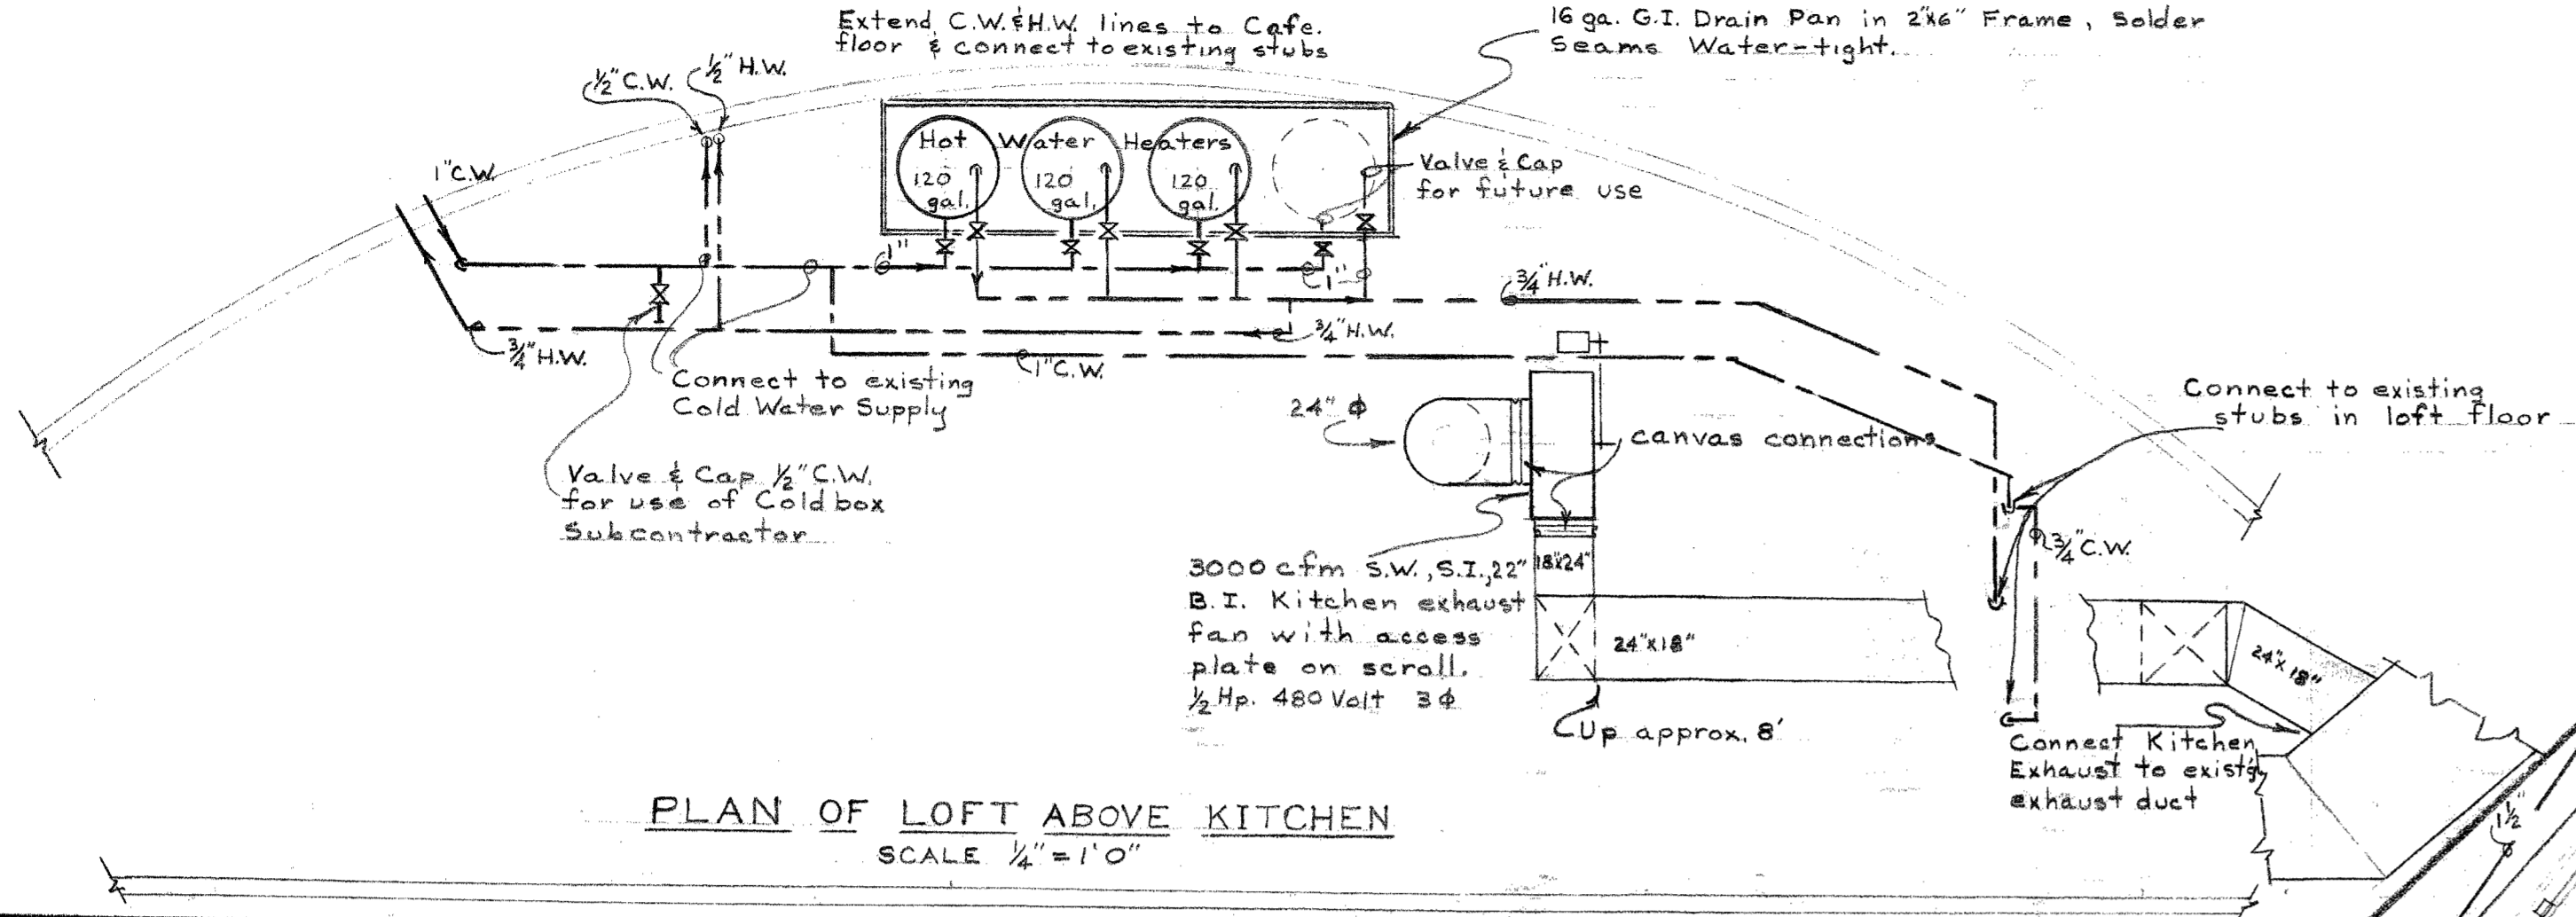 Extend C.W. & H.W. lines to Cafe.
floor & connect to existing stubs
16 ga. G.I. Drain Pan in 2"x6" Frame, Solder
Seams Water-tight.
½" C.W.
½" H.W.
1" C.W.
Hot Water Heaters
120 gal.
120 gal.
120 gal.
Valve & Cap
for future use
1"
1"
¾" H.W.
¾" H.W.
¾" H.W.
1" C.W.
Connect to existing
Cold Water Supply
Valve & Cap ½" C.W.
for use of Coldbox
Subcontractor
24" ϕ
canvas connections
Connect to existing
stubs in loft floor
¾" C.W.
3000 cfm S.W., S.I., 22"
B.I. Kitchen exhaust
fan with access
plate on scroll.
½ Hp. 480 Volt 3ϕ
18"x24"
24"x18"
24"x18"
Up approx. 8'
Connect Kitchen
Exhaust to exist'g
exhaust duct
1½"
PLAN OF LOFT ABOVE KITCHEN
SCALE ¼" = 1'0"